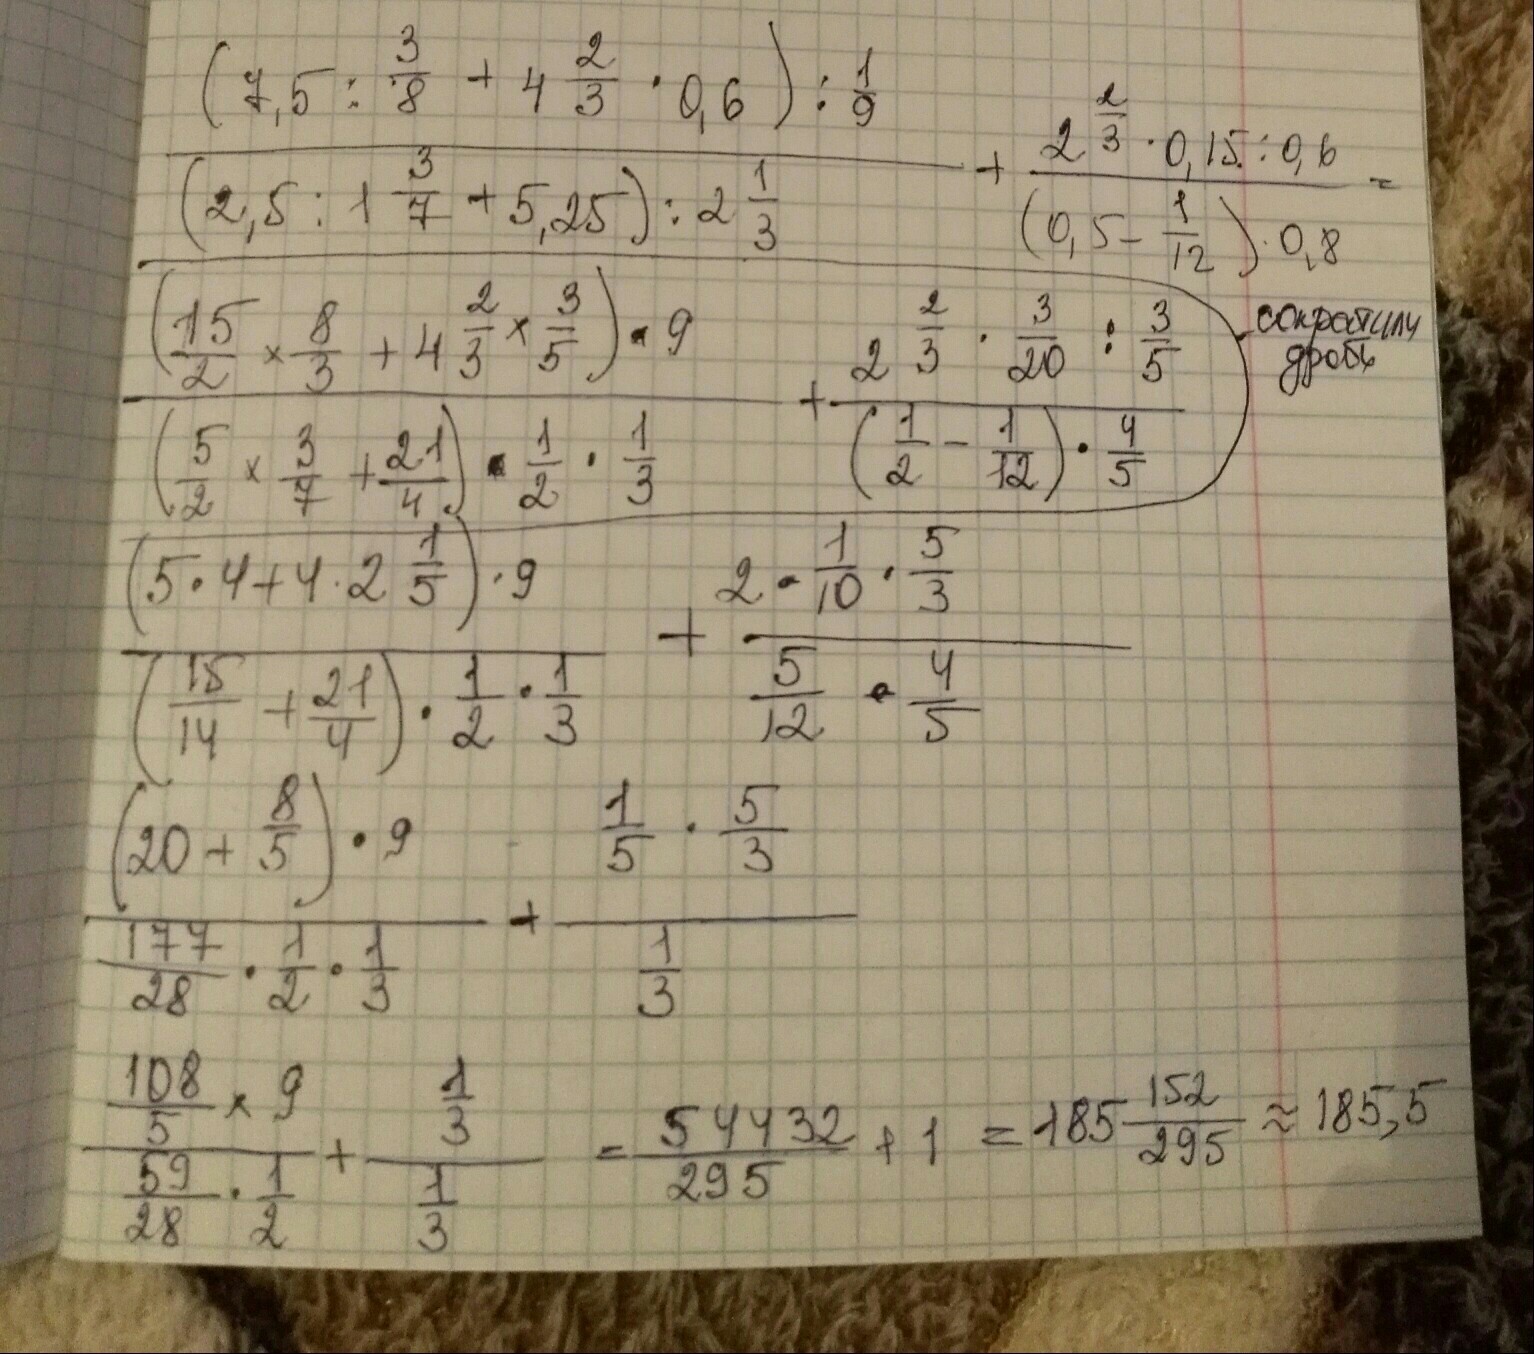 (7,5 : 3/8 + 4 2/3 · 0,6) : 1/9
(2,5 : 1 3/7 + 5,25) : 2 1/3
+
2 2/3 · 0,15 : 0,6
(0,5 - 1/12) · 0,8
=
(15/2 × 8/3 + 4 2/3 × 3/5) · 9
(5/2 × 3/7 + 21/4) · 1/2 · 1/3
+
2 2/3 · 3/20 : 3/5
(1/2 - 1/12) · 4/5
сократили
дробь
(5 · 4 + 4 · 2 1/5) · 9
(15/14 + 21/4) · 1/2 · 1/3
+
2 · 1/10 · 5/3
5/12 · 4/5
(20 + 8/5) · 9
177/28 · 1/2 · 1/3
+
1/5 · 5/3
1/3
108/5 × 9
59/28 · 1/2
+
1/3
1/3
= 54432/295 + 1 = 185 152/295 ≈ 185,5